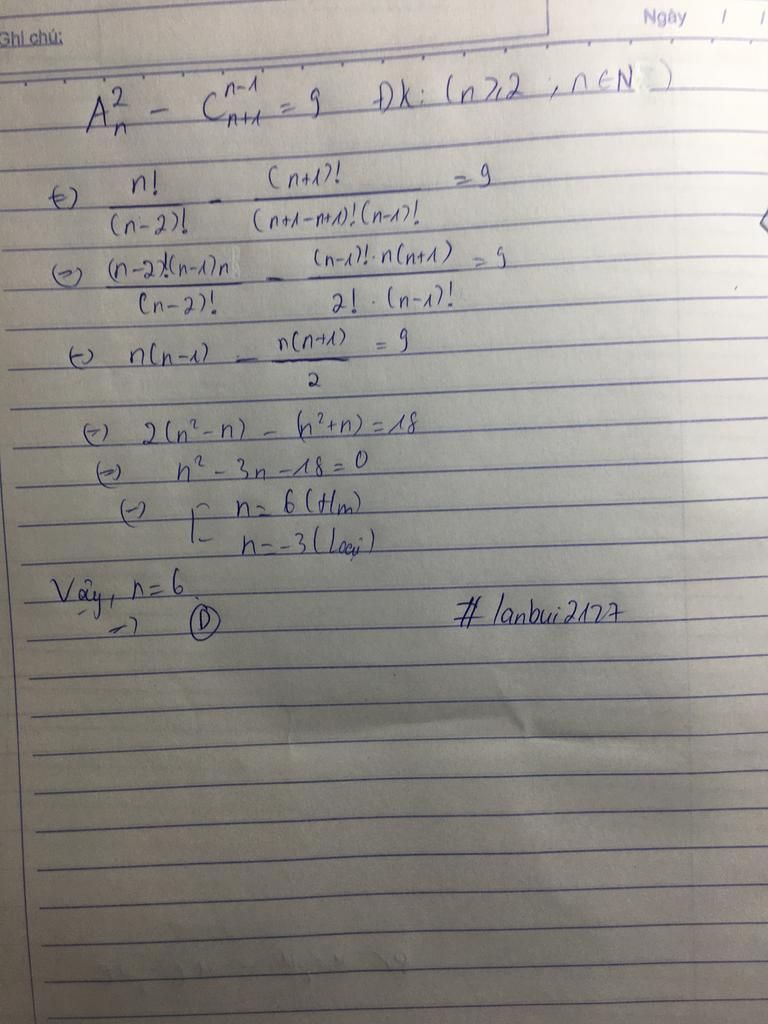 Ghi chú:
Ngày / /
A²ₙ − Cⁿ⁻¹ₙ₊₁ = 9 ĐK: (n ≥ 2 ; n ∈ N)
(=) n!/(n-2)! − (n+1)!/((n+1-n+1)!(n-1)!) = 9
(=) (n-2)!(n-1)n/(n-2)! − (n-1)!·n(n+1)/(2!·(n-1)!) = 9
(=) n(n-1) − n(n+1)/2 = 9
(=) 2(n²-n) − (n²+n) = 18
(=) n² - 3n - 18 = 0
(=) [ n = 6 (t/m)
n = -3 (loại)
Vậy, n = 6
=) Ⓓ
#lanbui2127